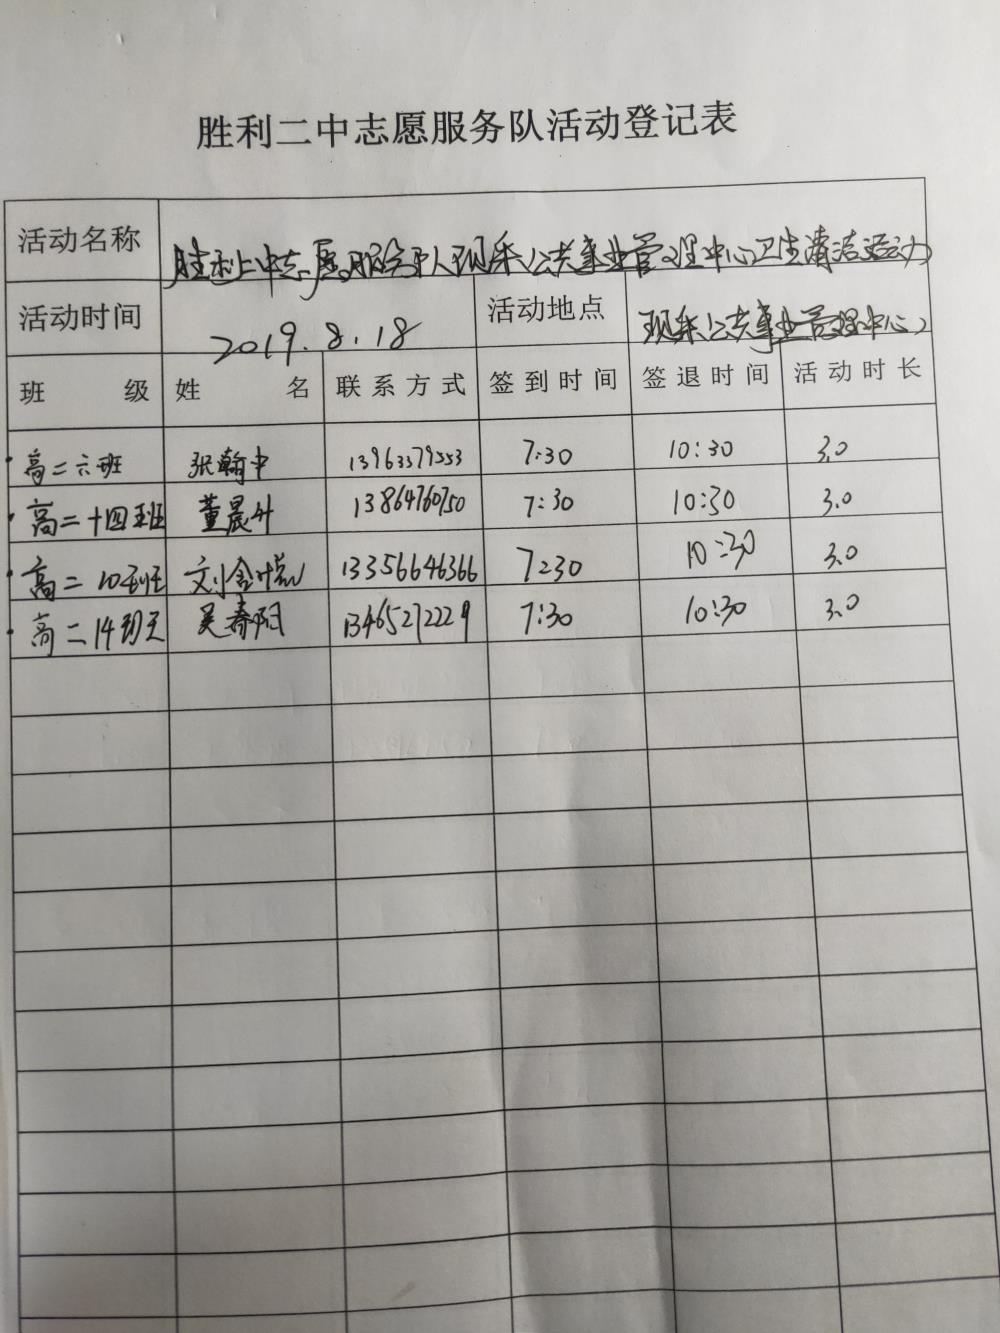 胜利二中志愿服务队活动登记表
活动名称 胜利二中志愿服务队现河公共事业管理中心卫生清洁活动
活动时间 2019.8.18 活动地点 现河公共事业管理中心
班级 姓名 联系方式 签到时间 签退时间 活动时长
高二六班 张翰中 13963379553 7:30 10:30 3.0
高二十四班 董晨升 13864760750 7:30 10:30 3.0
高二10班 刘金 13356646366 7:30 10:30 3.0
高二14班 吴春阳 13465272229 7:30 10:30 3.0